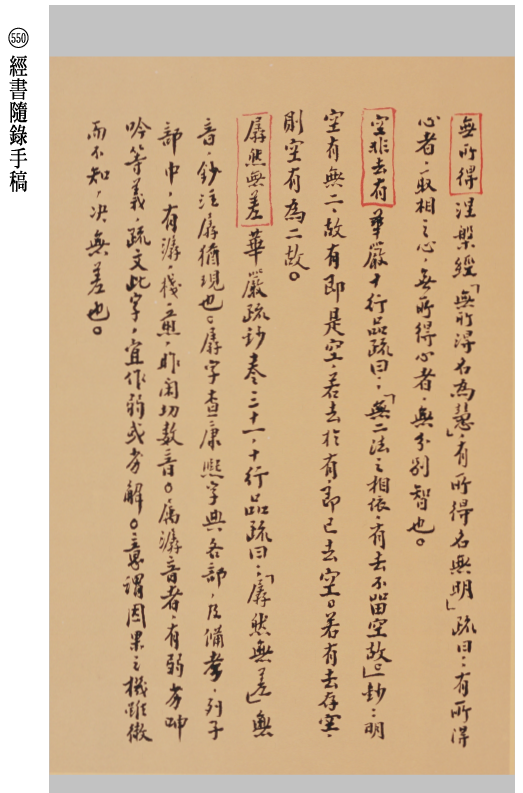 550 經書隨錄手稿
無所得 涅槃經「無所得名為慧,有所得名無明」疏曰:有所得
心者,取相之心,無所得心者,無分別智也。
空非去有 華嚴十行品疏曰:「無二法之相依,有去不留空故。」鈔:明
空有無二,故有即是空,若去於有,即已去空。若有去存空,
則空有為二故。
孱然無差 華嚴疏鈔卷三十一,十行品疏曰:「孱然無差」無
音,鈔注孱猶現也。孱字查康熙字典各部,及備考,列子
部中,有潺,棧,昨閑切數音。屬潺音者,有弱,劣,呻
吟等義,疏文此字,宜作弱或劣解。意謂因果之機雖微
而不知,決無差也。